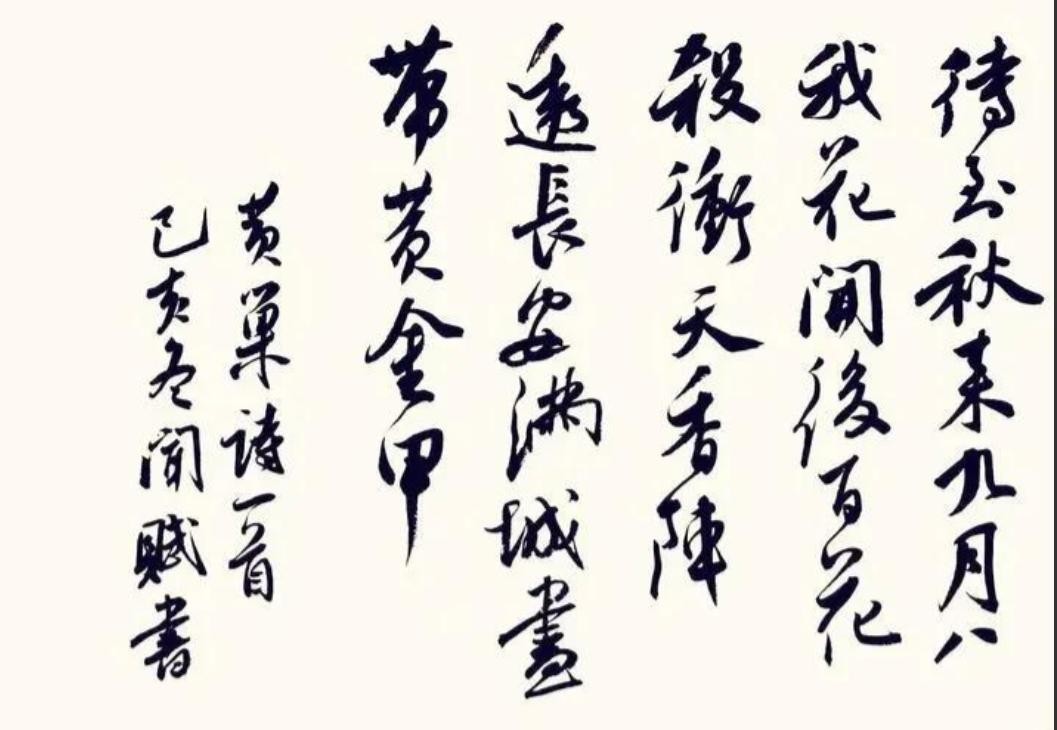 待到秋来九月八
我花開後百花
殺衝天香陣
透長安滿城盡
帶黄金甲
黄巢詩一首
己亥冬賦書